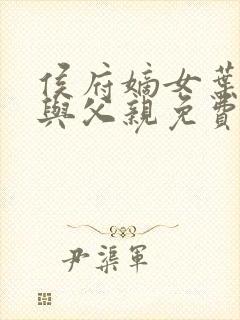 侯府嫡女葉
與父親免費
尹渠軍